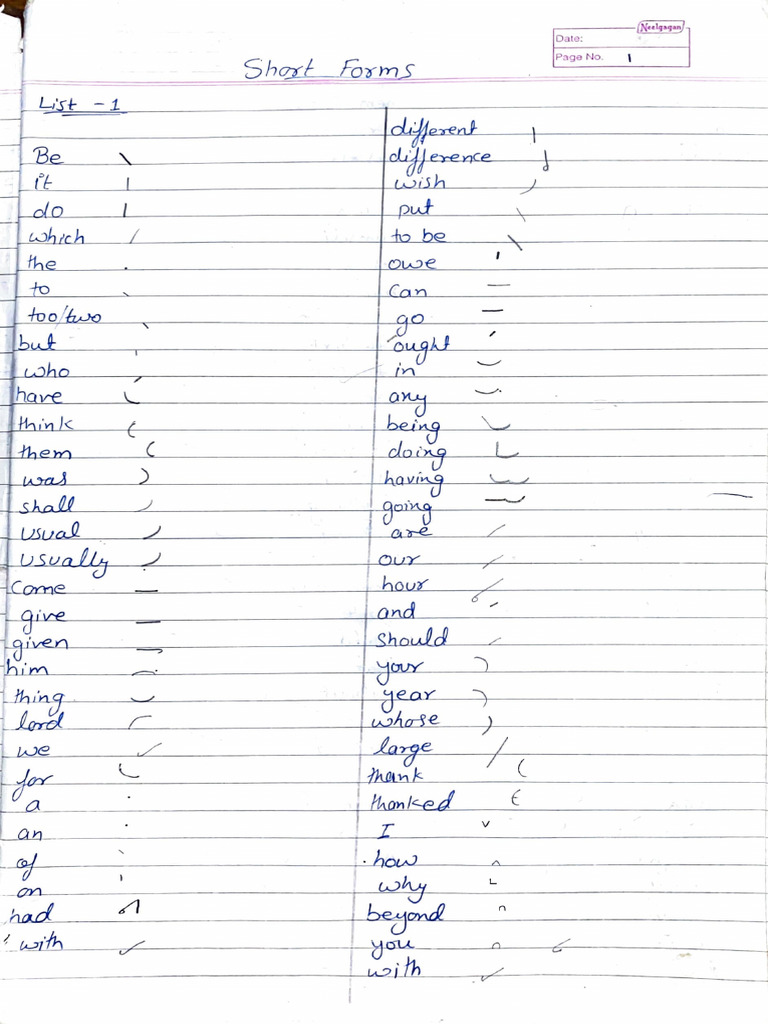 Neelgagan
Date:
Page No. 1
Short Forms
List - 1
Be
it
do
which
the
to
too/two
but
who
have
think
them
was
shall
usual
usually
Come
give
given
him
thing
lord
we
for
a
an
of
on
had
with
different
difference
wish
put
to be
owe
Can
go
ought
in
any
being
doing
having
going
are
our
hour
and
should
your
year
whose
large
thank
thanked
I
how
why
beyond
you
with